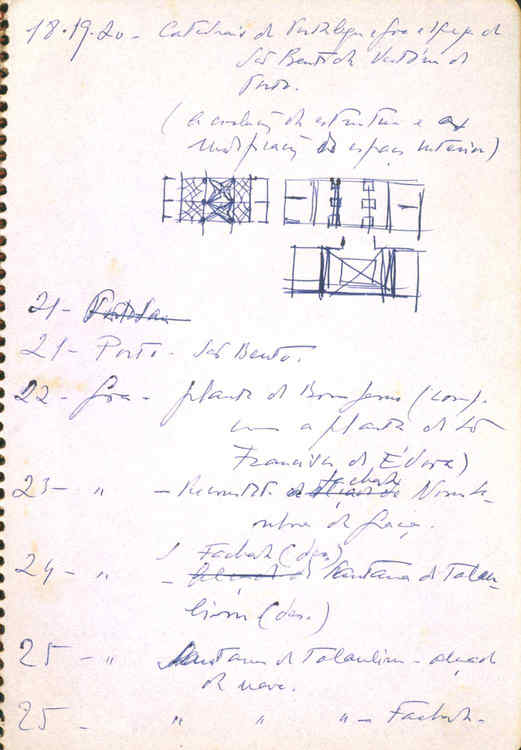 18.19.20 - Catedrais de Portalegre, Goa e Igreja de
São Bento da Vitória do
Porto.
(a evolução da estrutura e
modificação do espaço interior)
21-
21 - Porto - São Bento.
22 - Goa - planta do Bom Jesus (comp.
com a planta de S.
Francisco de Évora)
23 - " - Reconstit. fachada Nossa Se-
nhora da Graça.
24 - " - Fachada (des.)
de Santana de Talau-
lim (des.)
25 - " Santana de Talaulim - alçado
da nave.
25 - " " " - Fachada.